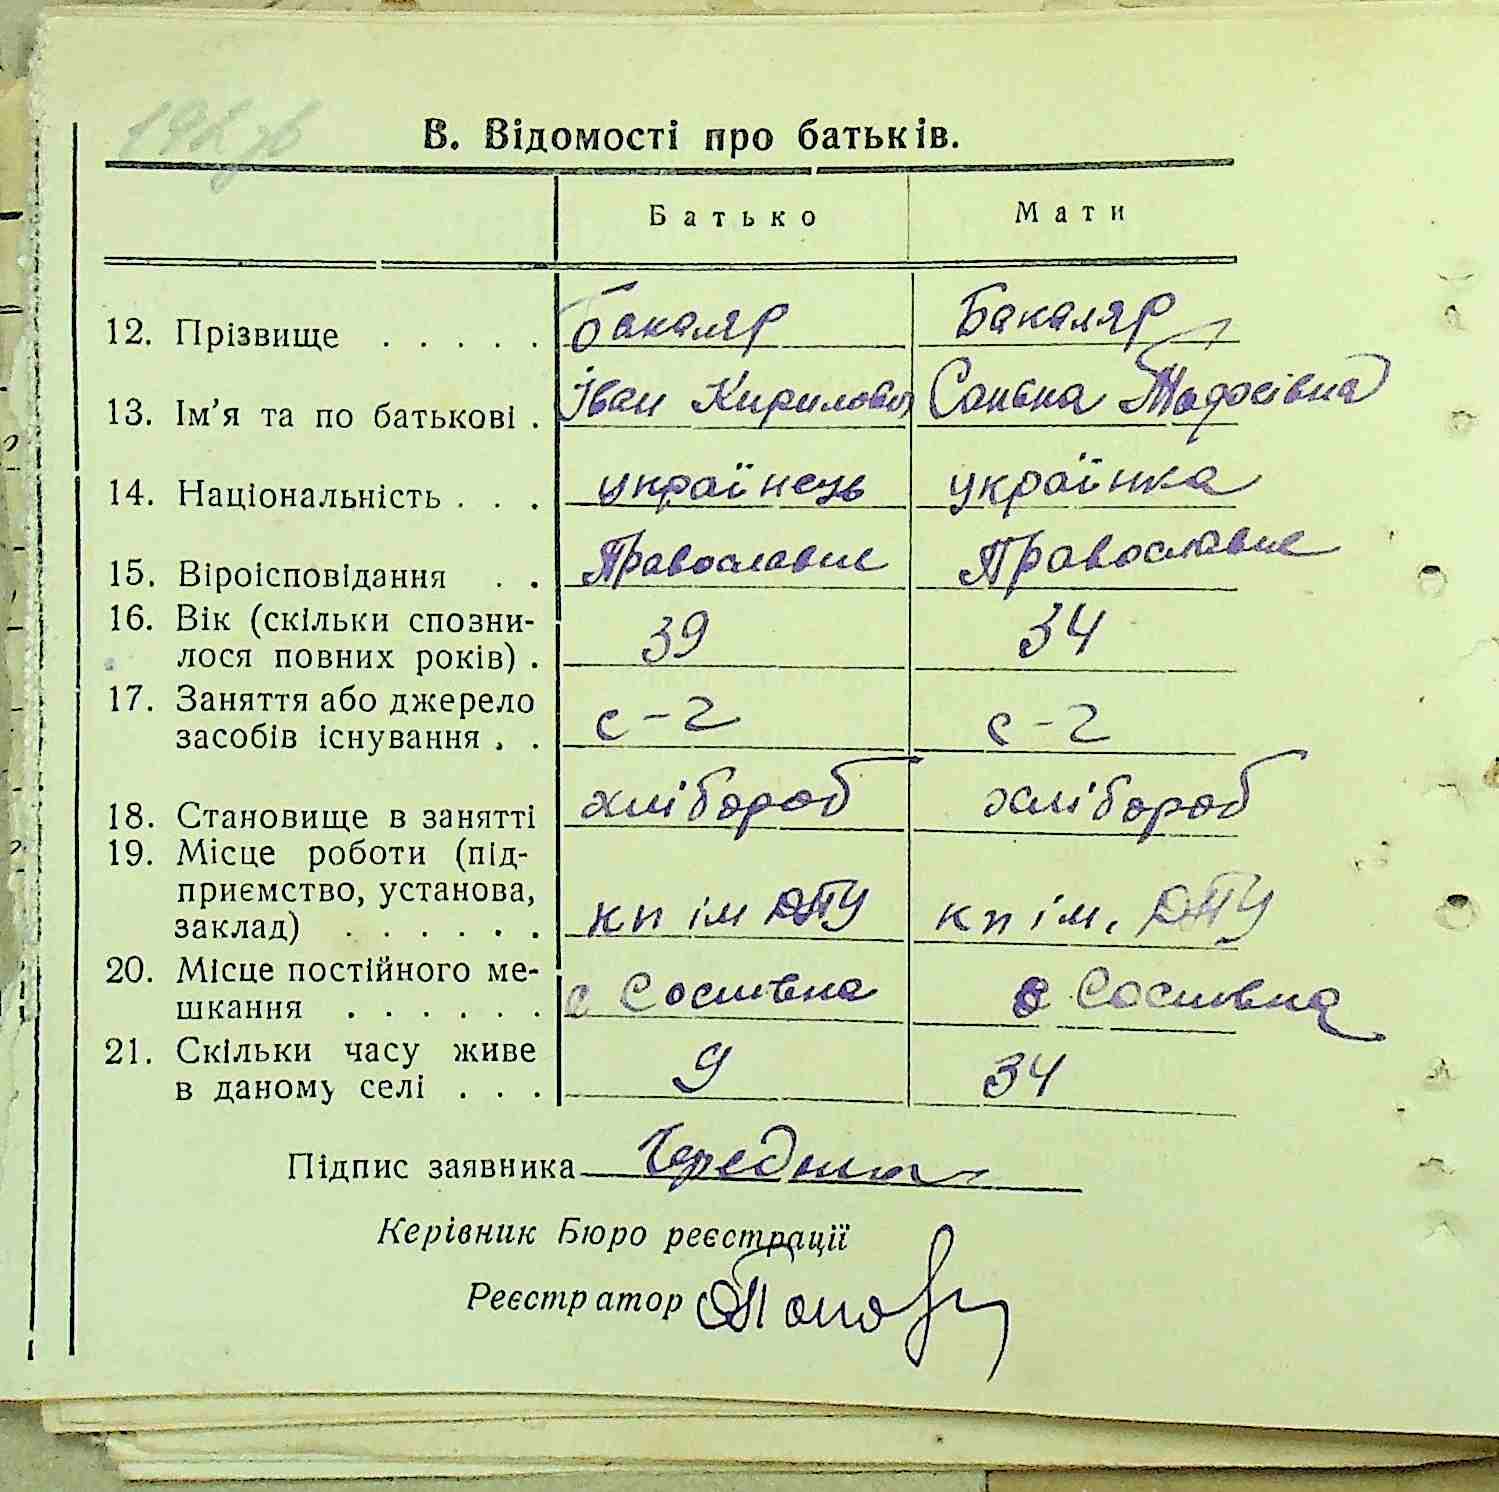 В. Відомості про батьків.
Батько Мати
12. Прізвище . . . . . Бакаляр Бакаляр
13. Ім'я та по батькові . Іван Кирилович Санька Тодосівна
14. Національність . . . українець українка
15. Віроісповідання . . Православне Православне
16. Вік (скільки спозни-
лося повних років) . 39 34
17. Заняття або джерело
засобів існування . . с-г с-г
18. Становище в занятті хлібороб хлібороб
19. Місце роботи (під-
приємство, установа,
заклад) . . . . . . кп ім ДПУ кп ім. ДПУ
20. Місце постійного ме-
шкання . . . . . . с Сосновка с Сосновка
21. Скільки часу живе
в даному селі . . . 9 34
Підпис заявника
Керівник Бюро реєстрації
Реєстратор